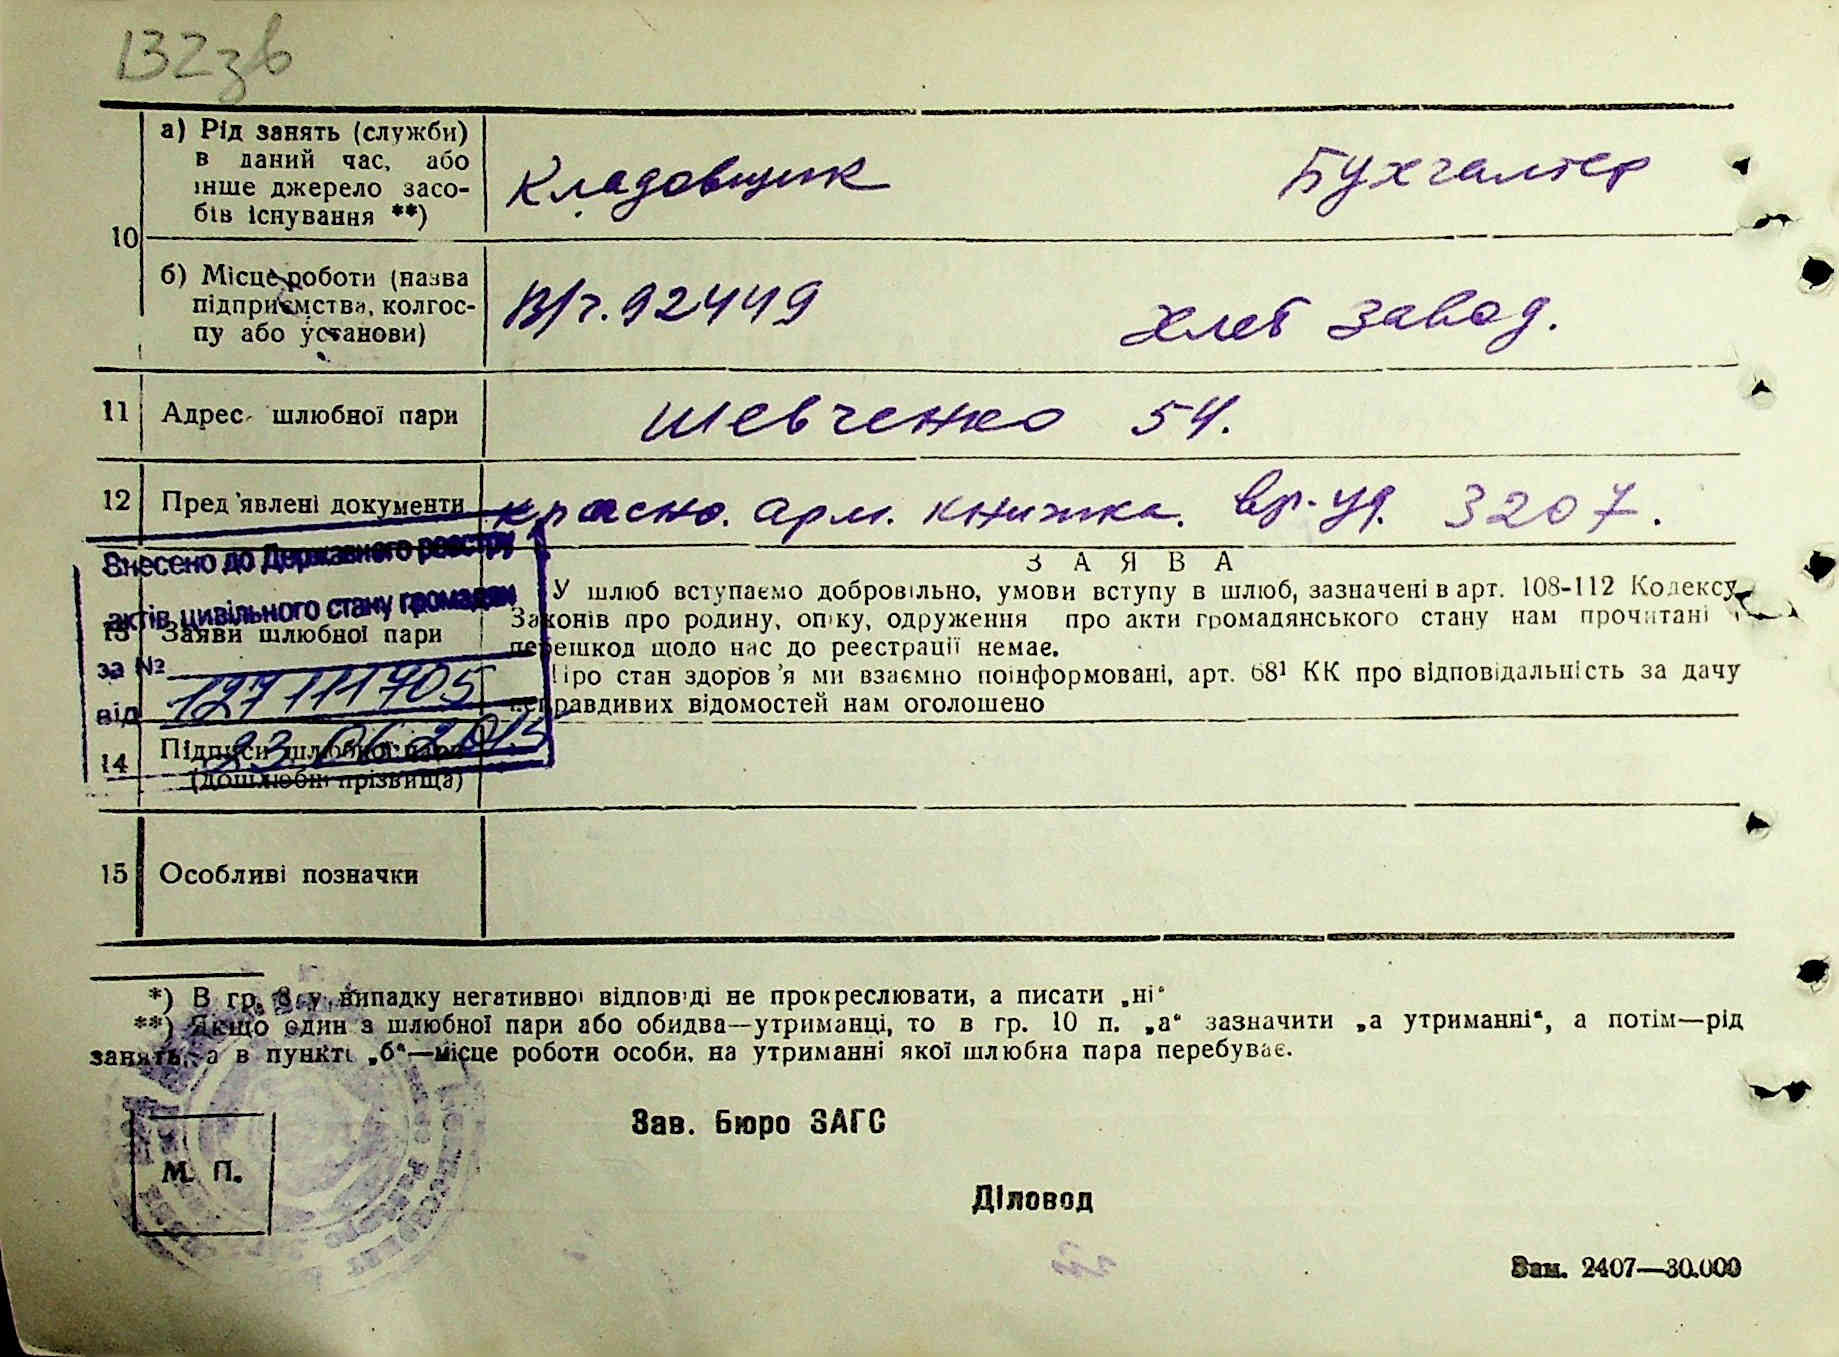 132зв
10
а) Рід занять (служби)
в даний час, або
інше джерело засо-
бів існування **)
Кладовщик
Бухгалтер
б) Місце роботи (назва
підприємства, колгос-
пу або установи)
В/ч. 92449
Хлеб завод.
11
Адрес шлюбної пари
Шевченко 54.
12
Пред'явлені документи
красно. арм. книжка. вр. уд. 3207.
Внесено до Державного реєстру
актів цивільного стану громадян
за № 127111705
від 23.06.2015
13
Заяви шлюбної пари
ЗАЯВА
У шлюб вступаємо добровільно, умови вступу в шлюб, зазначені в арт. 108-112 Кодексу
Законів про родину, опіку, одруження про акти громадянського стану нам прочитані
перешкод щодо нас до реєстрації немає.
Про стан здоров'я ми взаємно поінформовані, арт. 68¹ КК про відповідальність за дачу
неправдивих відомостей нам оголошено
14
Підписи шлюбної пари
(дошлюбні прізвища)
15
Особливі позначки
*) В гр. 8 у випадку негативної відповіді не прокреслювати, а писати „ні“
**) Якщо один з шлюбної пари або обидва—утриманці, то в гр. 10 п. „а“ зазначити „а утриманні“, а потім—рід
занять, а в пункті „б“—місце роботи особи, на утриманні якої шлюбна пара перебуває.
Зав. Бюро ЗАГС
М. П.
Діловод
Зам. 2407—30.000